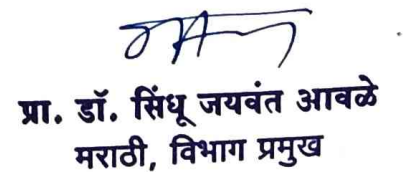 प्रा. डॉ. सिंधू जयवंत आवळे
मराठी, विभाग प्रमुख